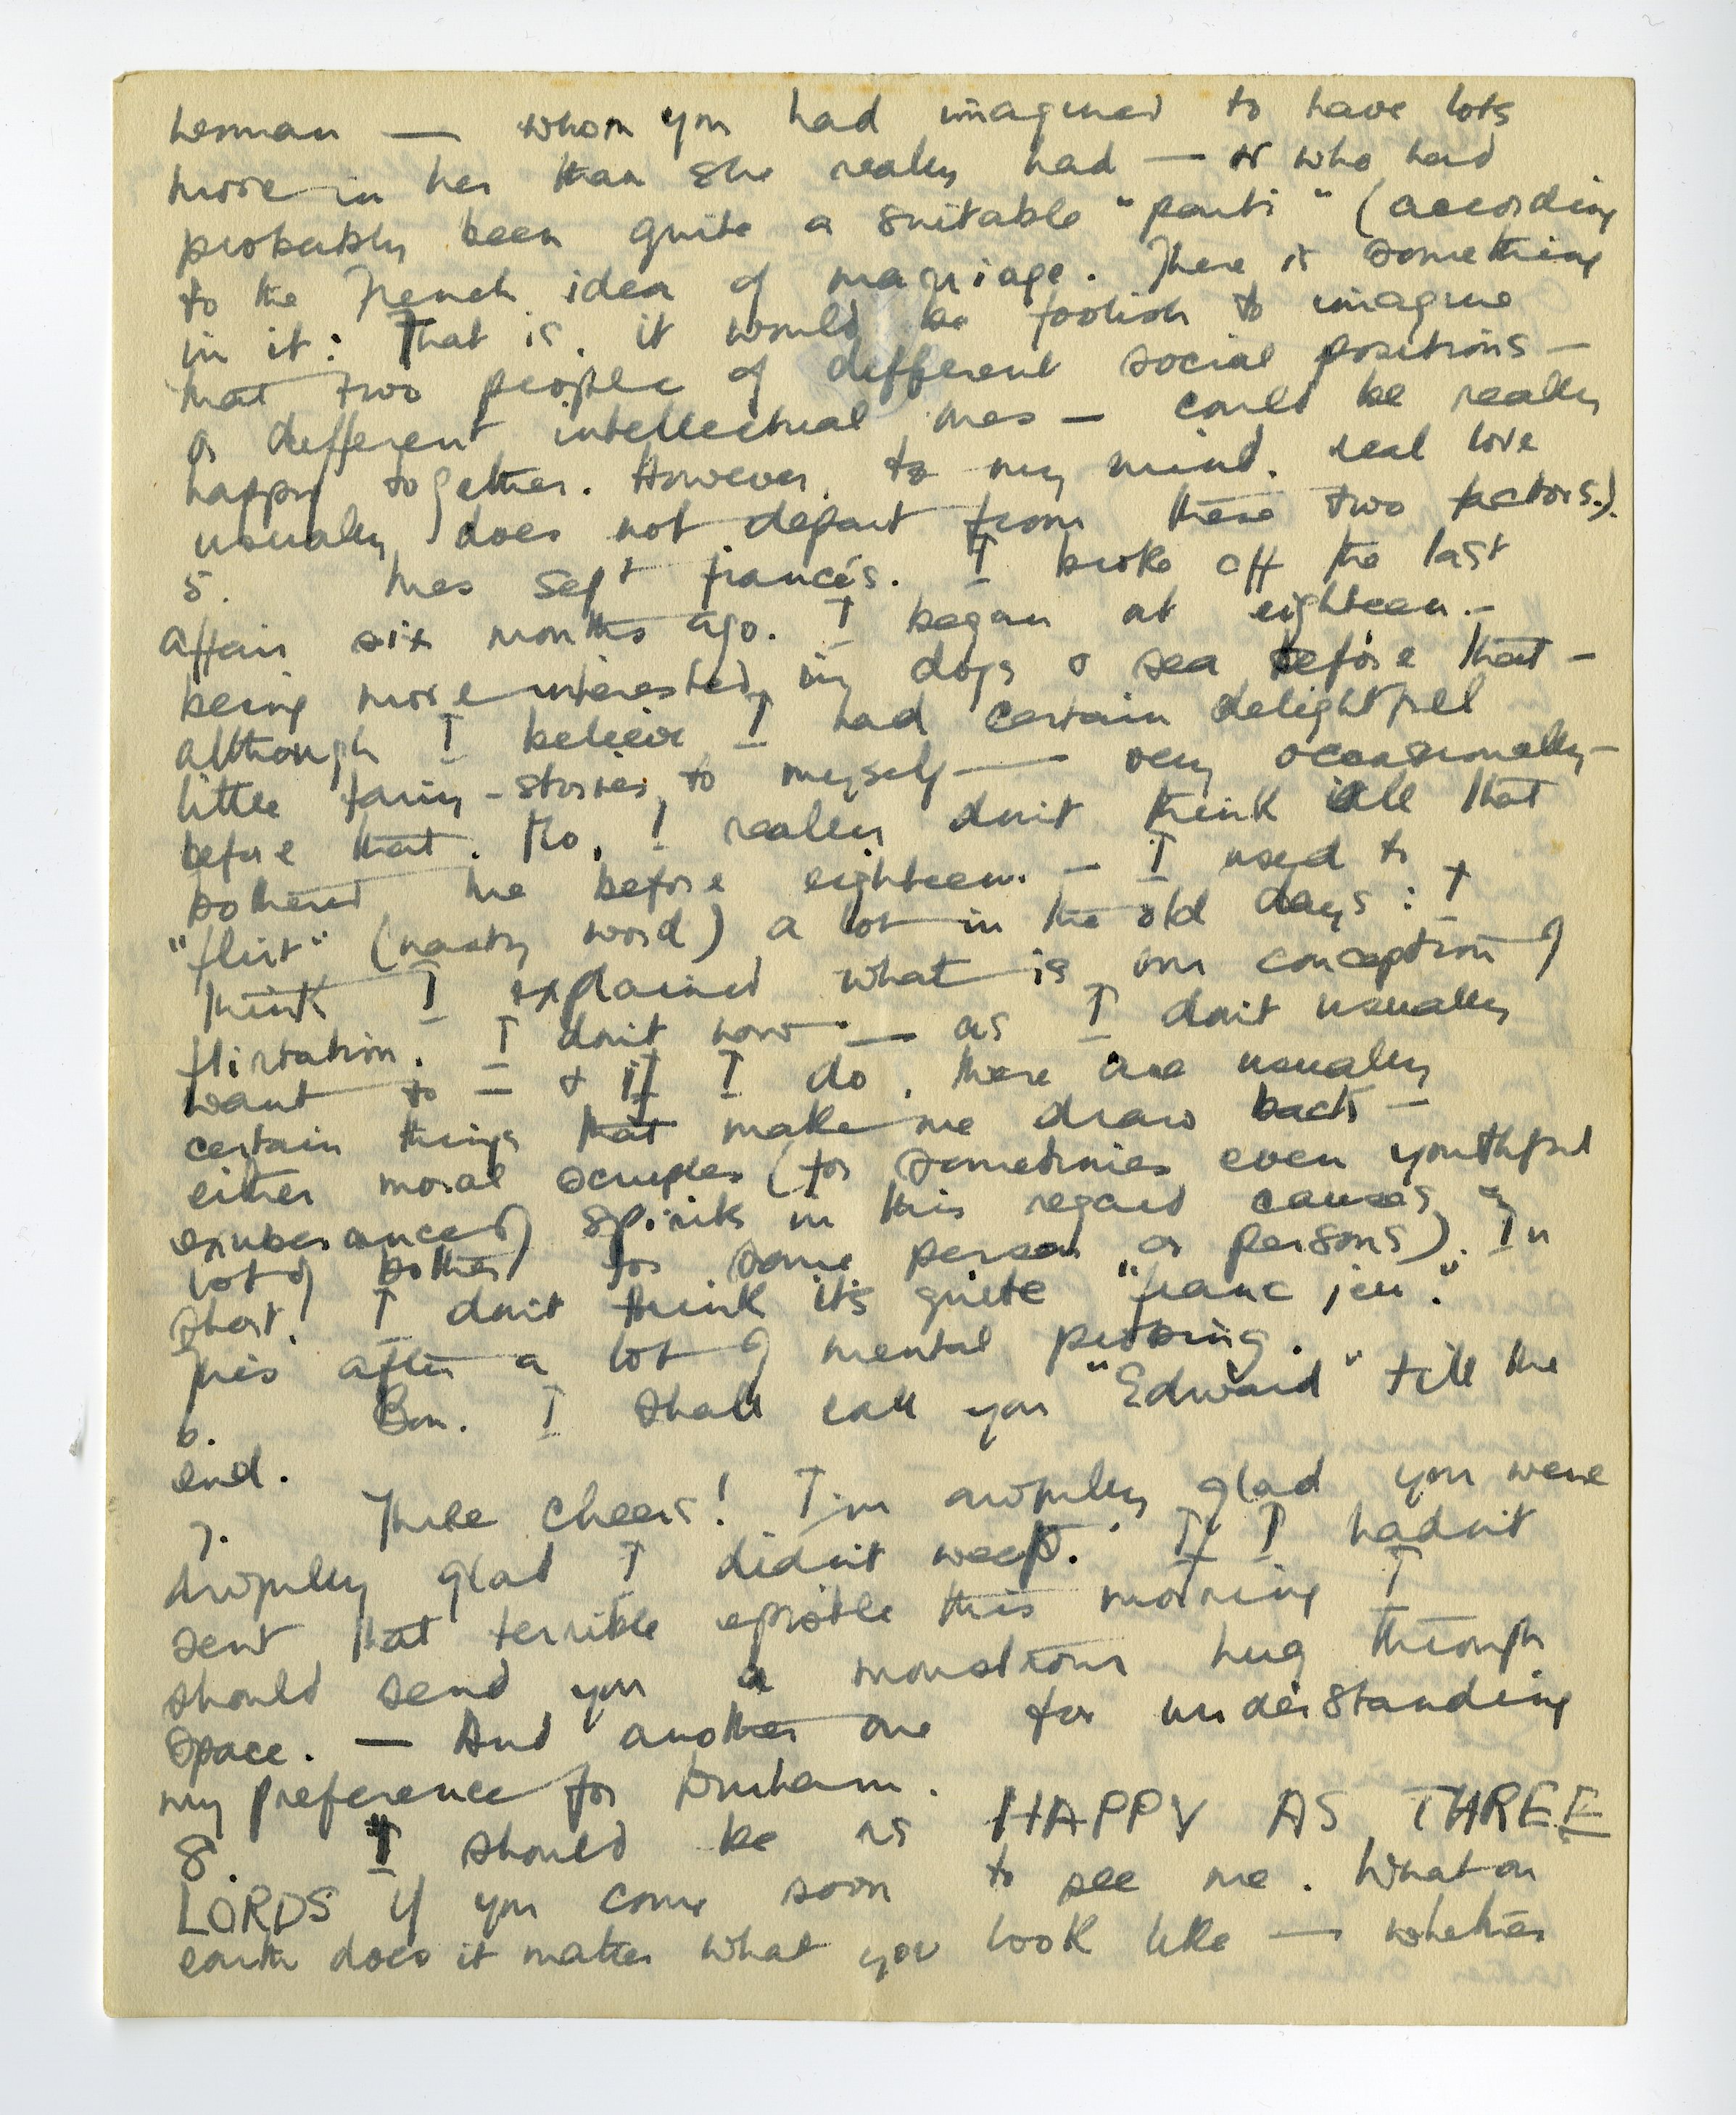 woman — whom you had imagined to have lots
more in her than she really had — or who had
probably been quite a suitable "parti" (according
to the French idea of marriage. There is something
in it: That is, it would be foolish to imagine
that two people of different social positions —
or different intellectual ones — could be really
happy together. However, to my mind, real love
usually does not depart from these two factors.).
5. Mes sept fiancés. I broke off the last
affair six months ago. I began at eighteen. —
being more interested in dogs & sea before that —
although I believe I had certain delightful
little fairy-stories to myself — very occasionally —
before that. No, I really don't think all that
bothered me before eighteen. — I used to
"flirt" (nasty word) a lot in the old days: I
think I explained what is our conception of
flirtation. I don't now — as I don't usually
want to — & if I do, there are usually
certain things that make me draw back —
either moral scruples (for sometimes even youthful
exuberance of spirits in this regard causes a
lot of bother for some person or persons). In
short! I don't think it's quite "franc jeu."
This after a lot of mental probing.
6. Bon. I shall call you "Edward" till the
end.
7. Three cheers! I'm awfully glad you were
awfully glad I didn't weep. If I hadn't
sent that terrible epistle this morning I
should send you a monstrous hug through
space. — And another one for understanding
my preference for Durham.
8. I should be as HAPPY AS THREE
LORDS if you come soon to see me. What on
earth does it matter what you look like — whether